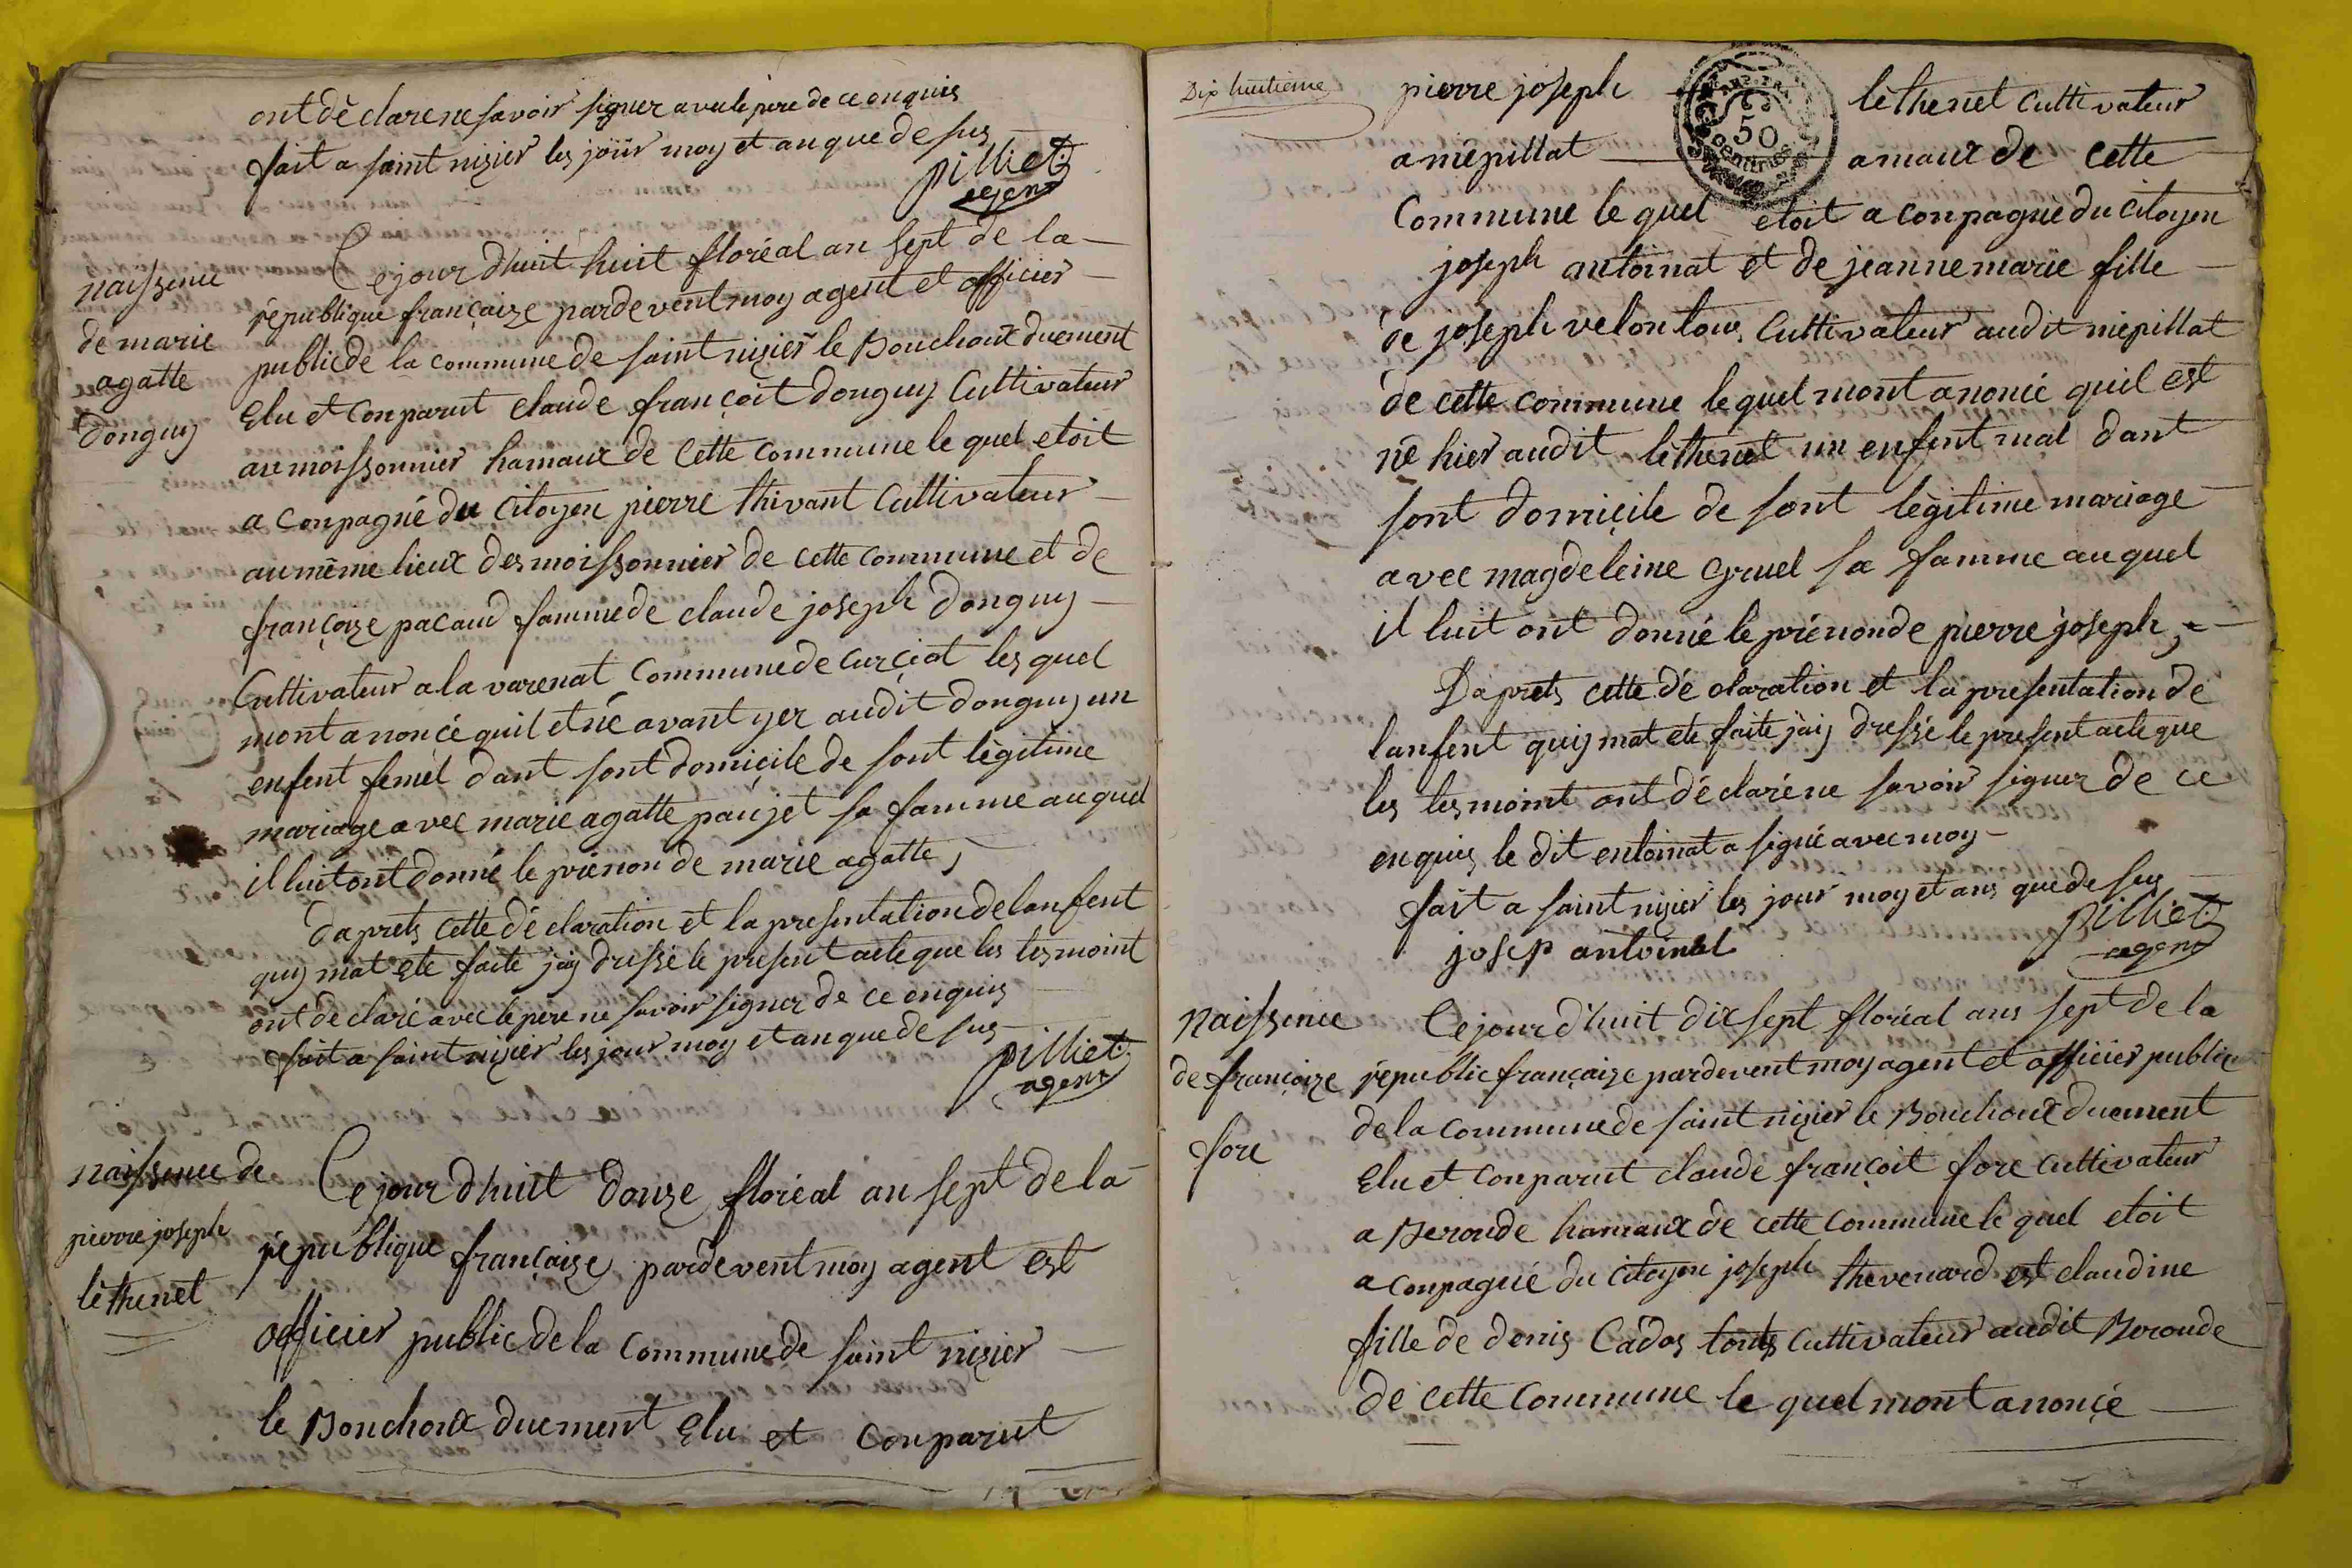 ont dèclare ne savoir signer avec le pere de ce enquis
fait a saint nizier les joür moy et an que de sus
pilliet
agent
naissence
de marie
agatte
donguy
Ce jour dhuit huit floréal an sept de la
république françaize pardevent moy agent et officier
public de la commune de saint nizier le Bouchoux duement
Elu et conparut claude françoit donguy Cultivateur
au moissonnier hamaux de Cette commune le quel etoit
a conpagné du Citoyen pierre thivant Cultivateur
au même lieux des moissonnier de cette commune et de
françoize pacaud famme de claude joseph donguy
Cultivateur a la varenat Commune de curciat les quel
mont anoncé quil et né avant yer audit donguy un
enfent femel dant sont domicile de sont lègitime
mariage avec marie agatte paujet sa famme au quel
il luit ont donné le prénon de marie agatte,
daprets cette déclaration et la presentation de lanfent
quy mat ete faite jay dressé le present acte que les tesmoint
ont declaré avec le pere ne savoir signer de ce enquis
fait a saint nizier les jour moy et an que de sus
pilliet
agent
naissence de
pierre joseph
lèthenet
Ce jour dhuit douze floréal an sept de la
république françaize pardevent moy agent est
officier public de la Commune de saint nizier
le Bouchoux duement Elu et Conparut
Dix huitieme
pierre joseph lèthenet Cultivateur
50
centimes
a mépillat amaux de cette
Commune le quel etoit a conpagné du Citoyen
joseph antoinat et de jeanne marie fille
de joseph velon tous Cultivateur audit mépillat
de cette commune le quel mont anoncé quil est
né hier audit lèthenet un enfent mal dant
sont domicile de sont lègitime mariage
avec magdeleine Gruel sa famme au quel
il luit ont donné le prénon de pierre joseph,
Daprets cette déclaration et la presentation de
lanfent quy mat ete faite jaij dressé le present acte que
les tesmoint ont déclaré ne savoir signer de ce
enquis le dit entoinat a signé avec moy
fait a saint nizier les jour moy et ans que de sus
pilliet
agent
josep antoinat
Naissence
de françoize
fore
Ce jour d'huit dix sept floréal ans sept de la
républic françaize pardevent moy agent et officier public
de la commune de saint nizier le Bouchoux duement
Elu et conparut claude françoit fore cultivateur
a Beroude hamaux de cette commune le quel etoit
a conpagné du Citoyen joseph thevenard est claudine
fille de denis Cados touts cultivateur audit Beroude
de cette commune le quel mont anoncé